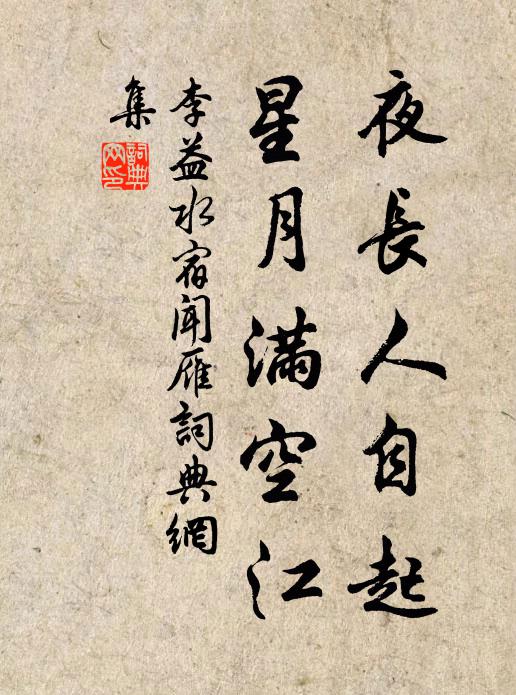 夜長人自起
星月滿空江
李益水宿聞雁詞典網
集
詞典
网印